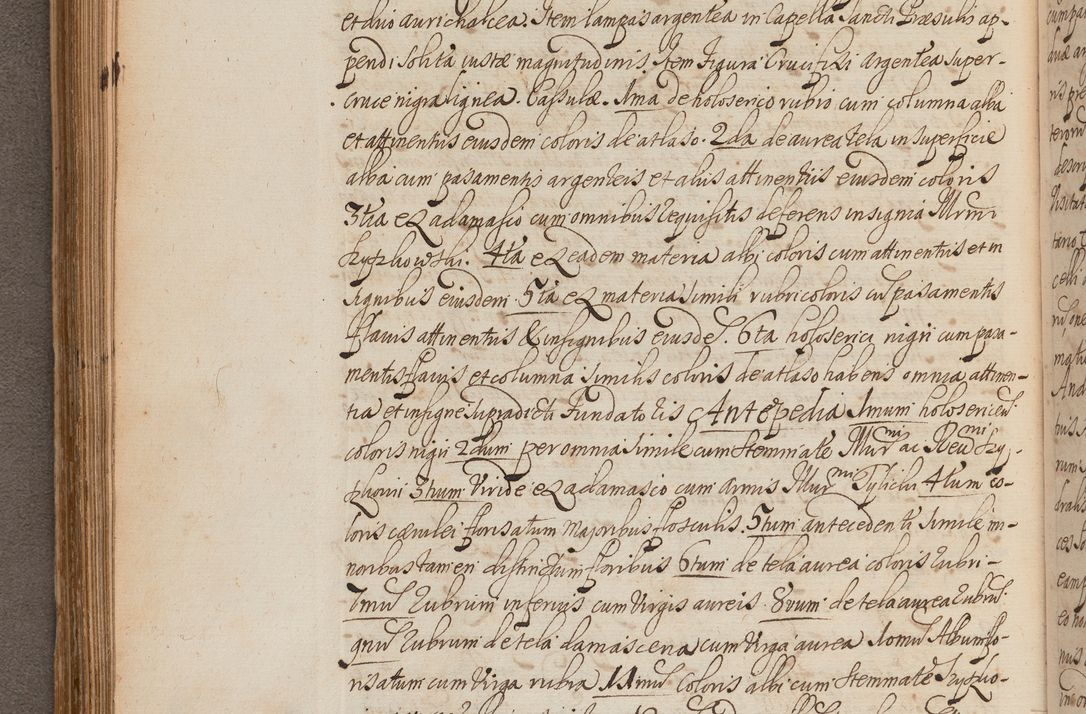 et duo aurichalcea. Item lampas argentea in Capella Sancti Præsulis ap-
pendi solita iustæ magnitudinis. Item Figura Crucifixi argentea super
cruce nigra lignea. Casulæ. 1ma de holoserico rubro cum columna alba
et attinentiis eiusdem coloris de atlaso. 2da de aurea tela in superficie
alba cum pasamentis argenteis et aliis attinentiis eiusdem coloris
3tia ex adamasco cum omnibus requisitis deferens insignia Illrmi
Szyszkowski. 4ta ex eadem materia albi coloris cum attinentiis et in
signibus eiusdem. 5ta ex materia simili rubri coloris cu pasamentis
flavis attinentiis & insignibus eiusde. 6ta holoserici nigri cum pasa-
mentis flavis et columna similis coloris de atlaso habens omnia attinen-
tia et insigne supradicti Fundatoris Antepedia 1mum holosericeu
coloris nigri 2dum per omnia simile cum stemmate Illurmi ac Revdmi Szy-
szkovii 3tium viride ex adamasco cum armis Illurmi Tylicki 4tum co-
loris cærulei florisatum majoribus flosculis. 5tum antecedenti simile mi-
noribus tamen distinctum floribus 6tum de tela aurea coloris rubri
7mu rubrum inferius cum virgis aureis. 8vum de tela aurea rubru
9nu rubrum de tela damascena cum virga aurea 10mu Album flo-
risatum cum virga rubra 11mu coloris albi cum stemmate Szyszko-